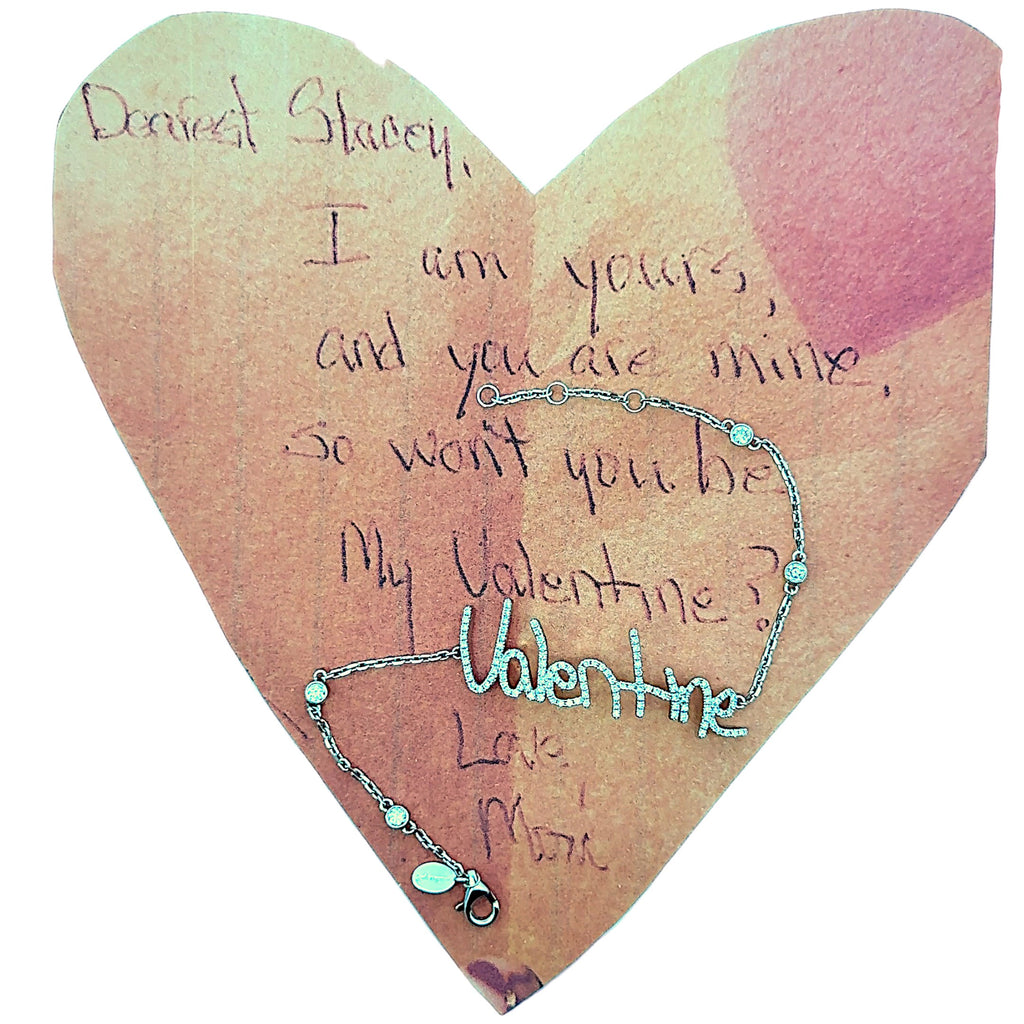 Dearest Stacey,
I am yours,
and you are mine,
so won't you be
My Valentine?
Valentine
Love